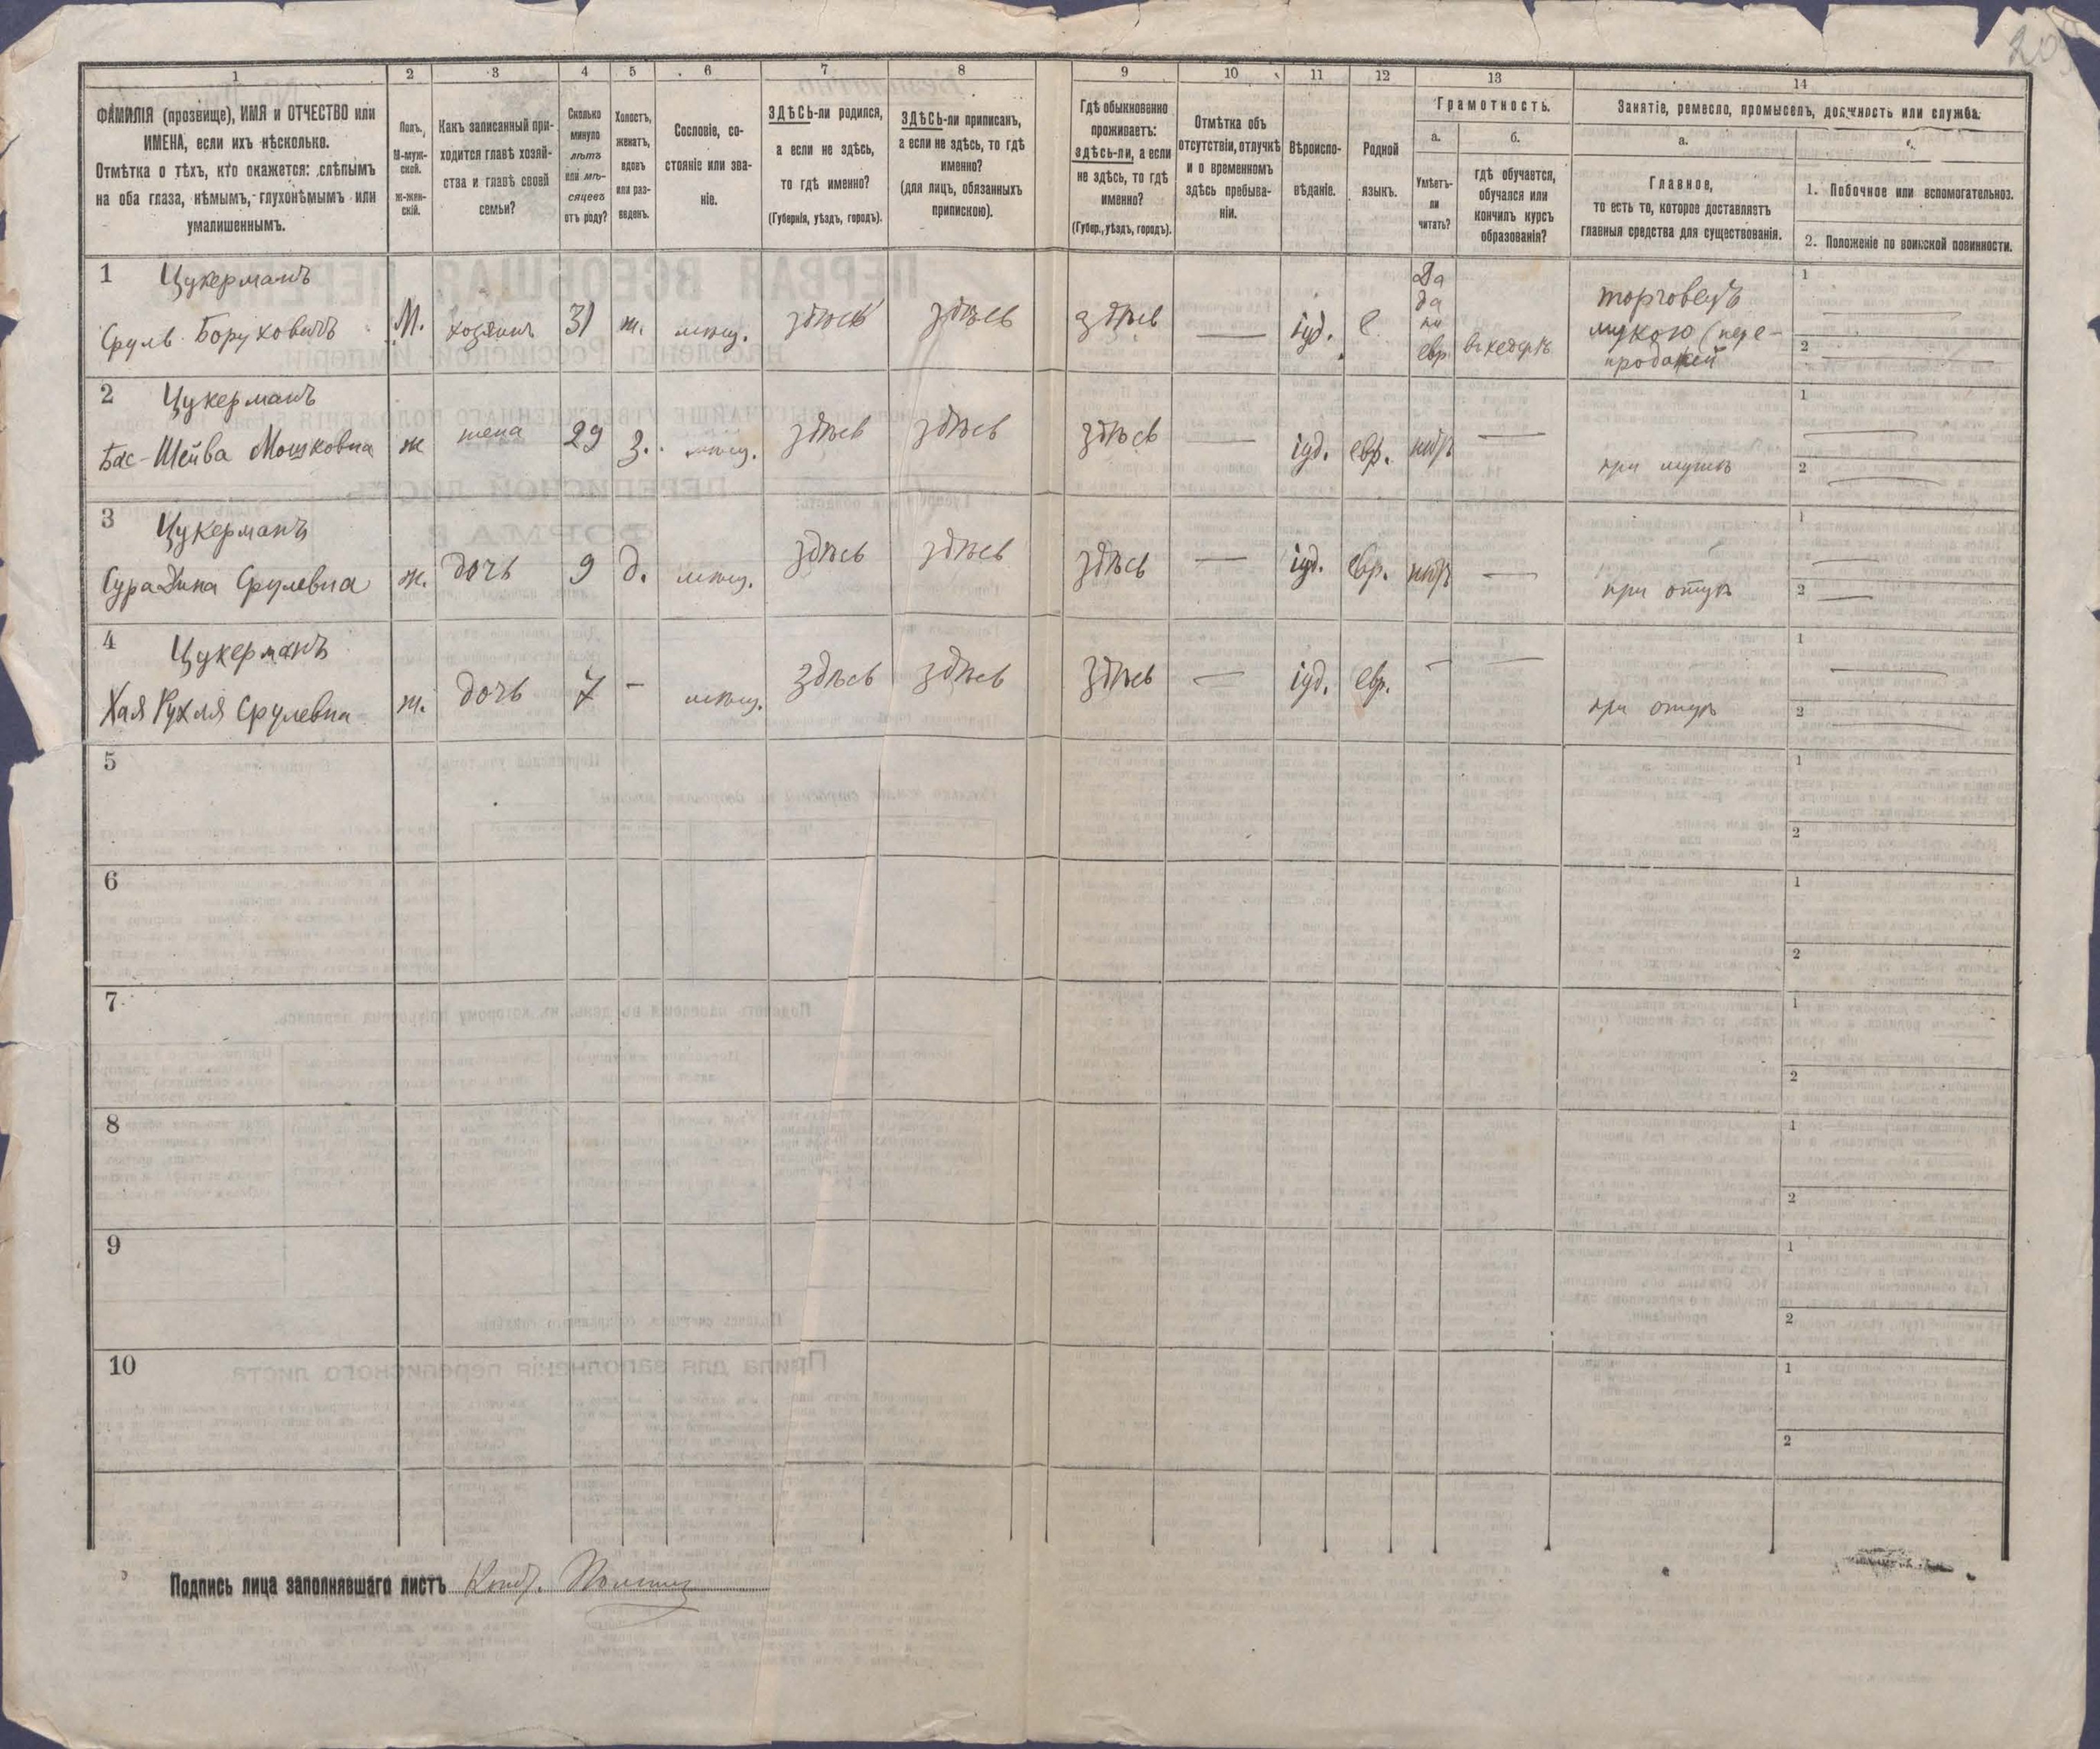 1
2
3
4
5
6
7
8
9
10
11
12
13
14
ФАМИЛІЯ (прозвище), ИМЯ и ОТЧЕСТВО или
ИМЕНА, если ихъ нѣсколько.
Отмѣтка о тѣхъ, кто окажется: слѣпымъ
на оба глаза, нѣмымъ, глухонѣмымъ или
умалишеннымъ.
Полъ,
М-муж-
ской.
ж-жен-
скій.
Какъ записанный при-
ходится главѣ хозяй-
ства и главѣ своей
семьи?
Сколько
минуло
лѣтъ
или мѣ-
сяцевъ
отъ роду?
Холостъ,
женатъ,
вдовъ
или раз-
веденъ.
Сословіе, со-
стояніе или зва-
ніе.
ЗДѢСЬ-ли родился,
а если не здѣсь,
то гдѣ именно?
(Губернія, уѣздъ, городъ).
ЗДѢСЬ-ли приписанъ,
а если не здѣсь, то гдѣ
именно?
(для лицъ, обязанныхъ
припискою).
Гдѣ обыкновенно
проживаетъ:
здѣсь-ли, а если
не здѣсь, то гдѣ
именно?
(Губер., уѣздъ, городъ).
Отмѣтка объ
отсутствіи, отлучкѣ
и о временномъ
здѣсь пребыва-
ніи.
Вѣроиспо-
вѣданіе.
Родной
языкъ.
Грамотность.
а.
Умѣетъ-
ли
читать?
б.
гдѣ обучается,
обучался или
кончилъ курсъ
образованія?
Занятіе, ремесло, промыселъ, должность или служба.
а.
Главное,
то есть то, которое доставляетъ
главныя средства для существованія.
1. Побочное или вспомогательное.
2. Положеніе по воинской повинности.
1 Цукерманъ
Сруль Боруховичъ М. хозяинъ 31 ж. мѣщ. здѣсь здѣсь здѣсь — іуд. е. Да
да
по
евр. въ хедерѣ торговецъ
мукою (пере-
продажей
1 —
2 —
2 Цукерманъ
Бас-Шейва Мошковна ж жена 29 з. мѣщ. здѣсь здѣсь здѣсь — іуд. евр. нѣтъ — при мужѣ
1 —
2 —
3 Цукерманъ
Сура Дина Срулевна ж. дочь 9 д. мѣщ. здѣсь здѣсь здѣсь — іуд. евр. нѣтъ — при отцѣ
1 —
2 —
4 Цукерманъ
Хая Рухля Срулевна ж. дочь 7 - мѣщ. здѣсь здѣсь здѣсь — іуд. евр. — — при отцѣ
1 —
2 —
5
1
2
6
1
2
7
1
2
8
1
2
9
1
2
10
1
2
Подпись лица заполнявшаго листъ